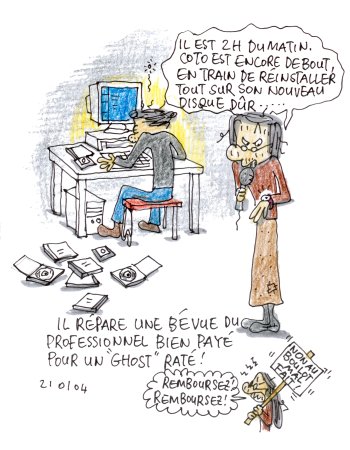 IL EST 2H DU MATIN.
COTO EST ENCORE DEBOUT,
EN TRAIN DE RÉINSTALLER
TOUT SUR SON NOUVEAU
DISQUE DÛR.....
IL RÉPARE UNE BÉVUE DU
PROFESSIONNEL BIEN PAYÉ
POUR UN "GHOST" RATÉ!
21/01/04
REMBOURSEZ!
REMBOURSEZ!
NON AU
BOULOT
MAL
FAIT!